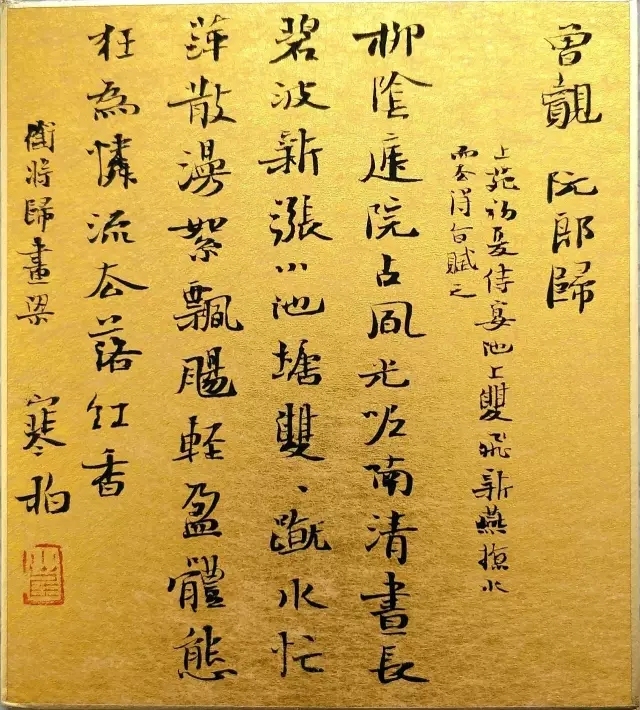 曾覿 阮郎歸
上苑初夏侍宴池上雙飛新燕掠水
而去得旨賦之
柳陰庭院占風光呢南清晝長
碧波新漲小池塘雙、蹴水忙
萍散漫絮飄颺軽盈體態
狂為憐流去落紅香
銜將歸畫梁 寒柏